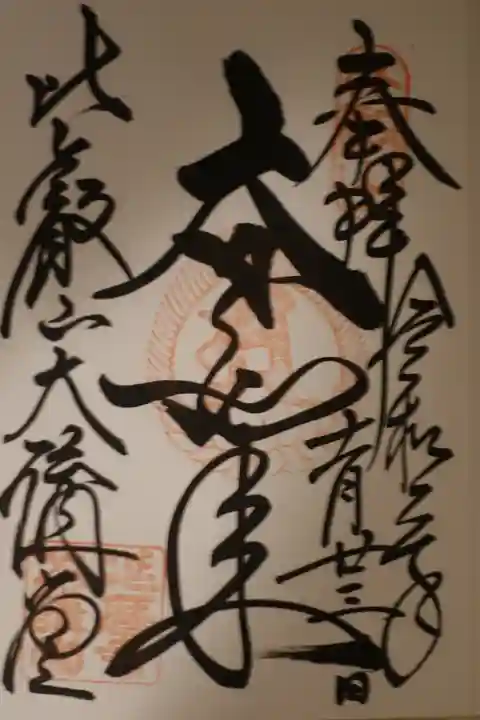 奉拝
令和二年
十一月廿三日
大日如来
比叡山大講堂